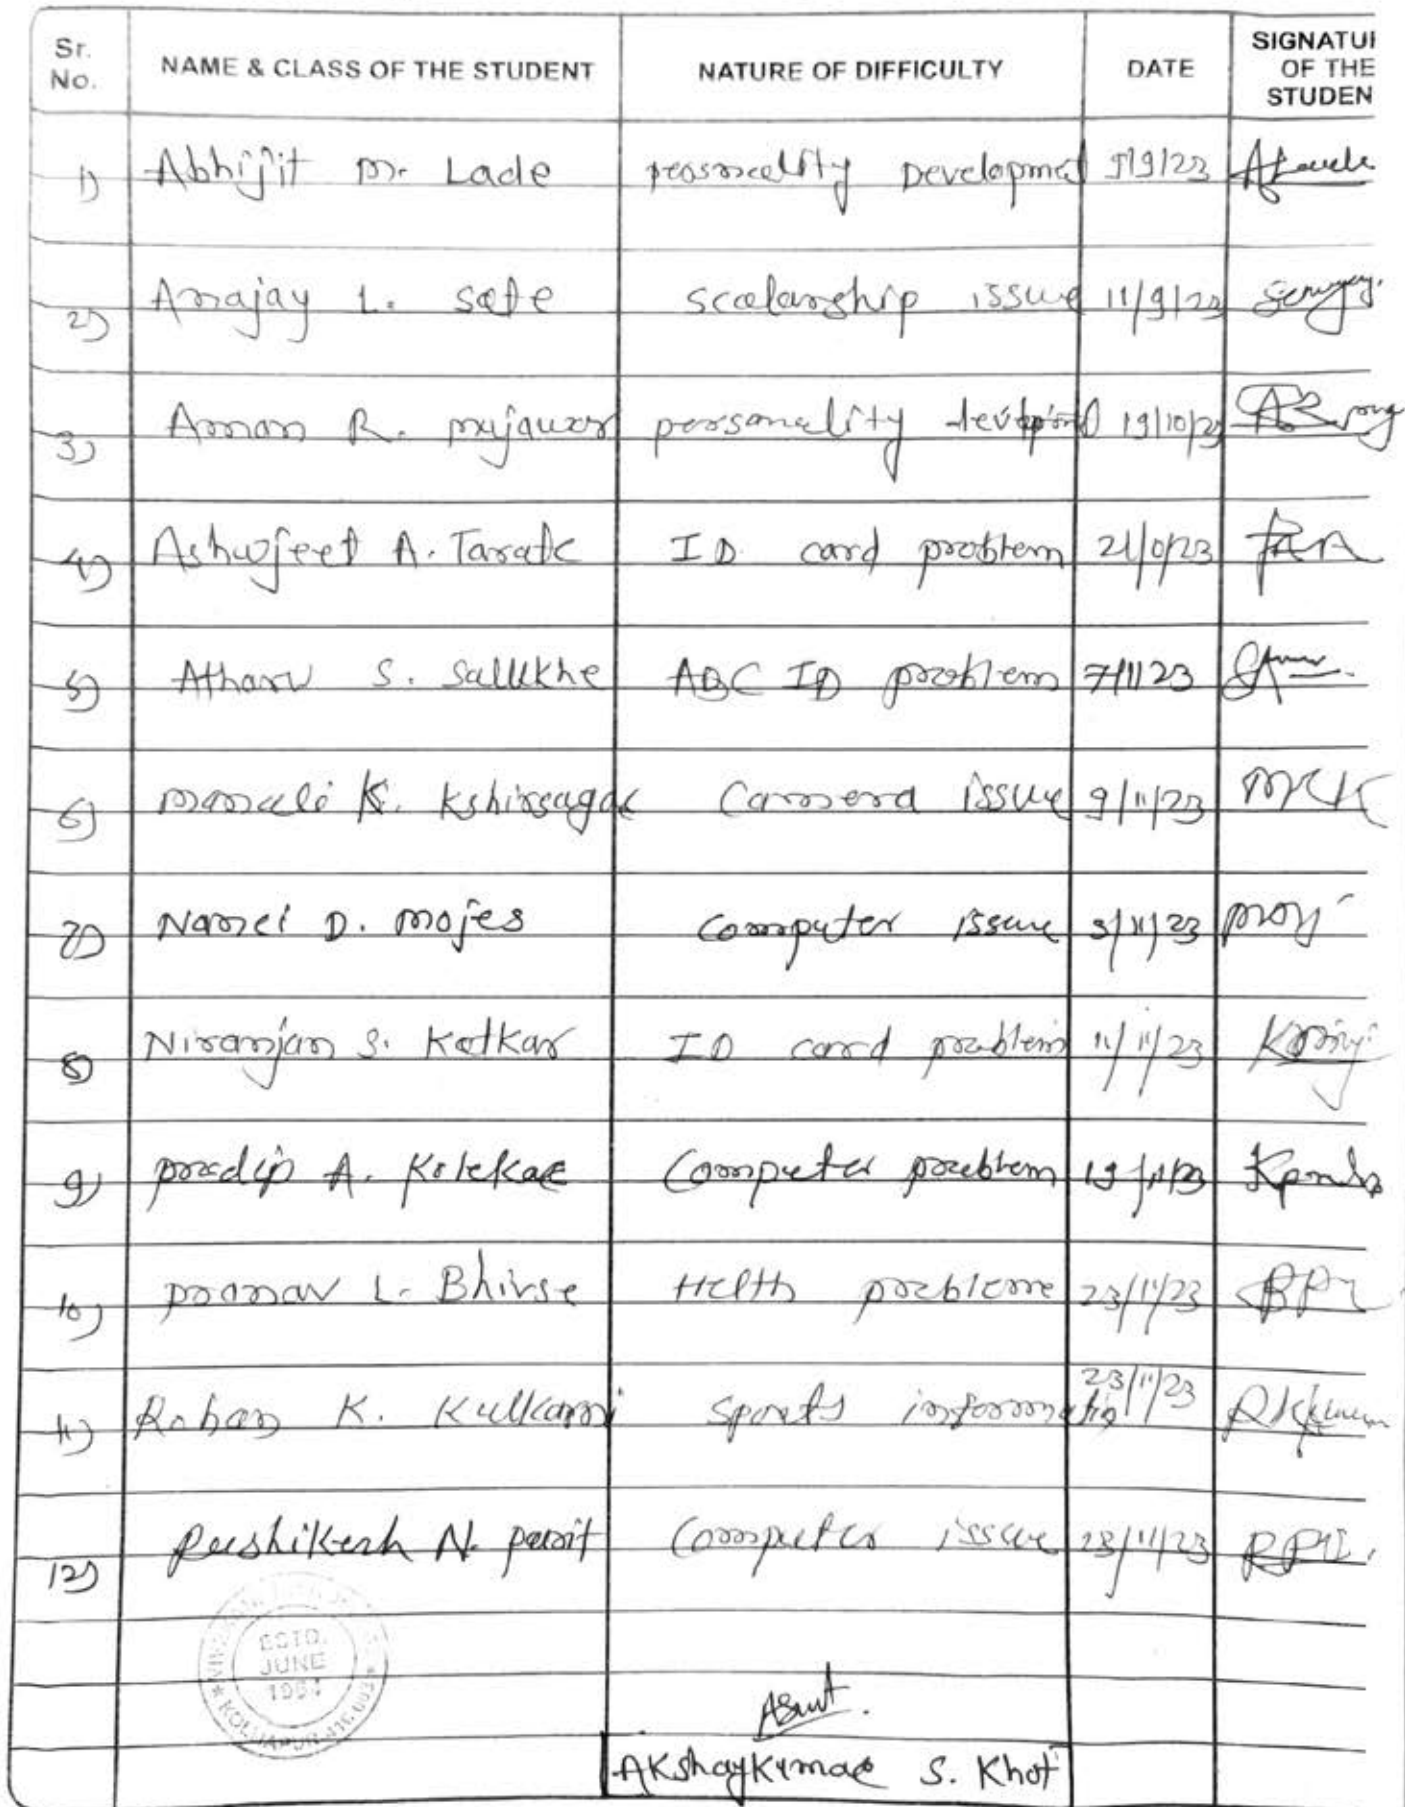 Sr. No. NAME & CLASS OF THE STUDENT NATURE OF DIFFICULTY DATE SIGNATUR OF THE STUDEN
1) Abhijit M. Lade Development 5/9/23
2) L. issue 11/9/23
3) Aman R. mujawar personality 19/10/23
4) Ashwjeet A. Tarate ID card problem
5) Atharv S. Salukhe ABC ID problem 7/11/23
6) K. Kshirsagar Camera issue 9/11/23 MKK
7) D. mojes Computer issue
8) Niranjan S. Kotkar ID card problem 11/11/23
9) pradip A. Kolekar Computer problem
10) pranav L. Helth 23/11/23 BPL
11) Rohan K. Kulkarni Sports information 23/11/23
12) N. parit Computer issue 23/11/23
ESTD.
JUNE
KOLHAPUR
AKshaykumar S. Khot